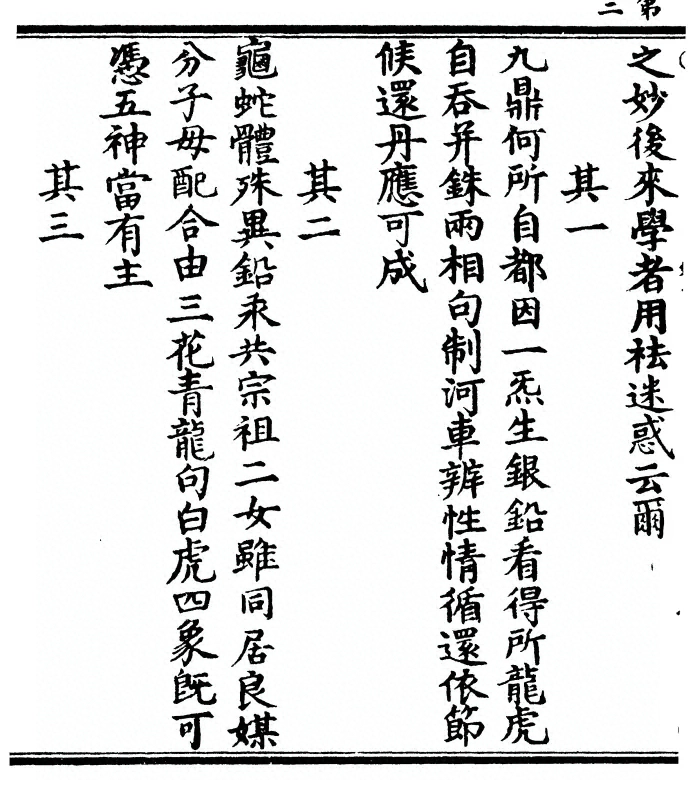 第二
之妙後來學者用袪迷惑云爾
其一
九鼎何所自都因一炁生銀鉛看得所龍虎
自吞并銖兩相句制河車辨性情循還依節
候還丹應可成
其二
龜蛇體殊異鉛汞共宗祖二女雖同居良媒
分子母配合由三花青龍句白虎四象旣可
憑五神當有主
其三